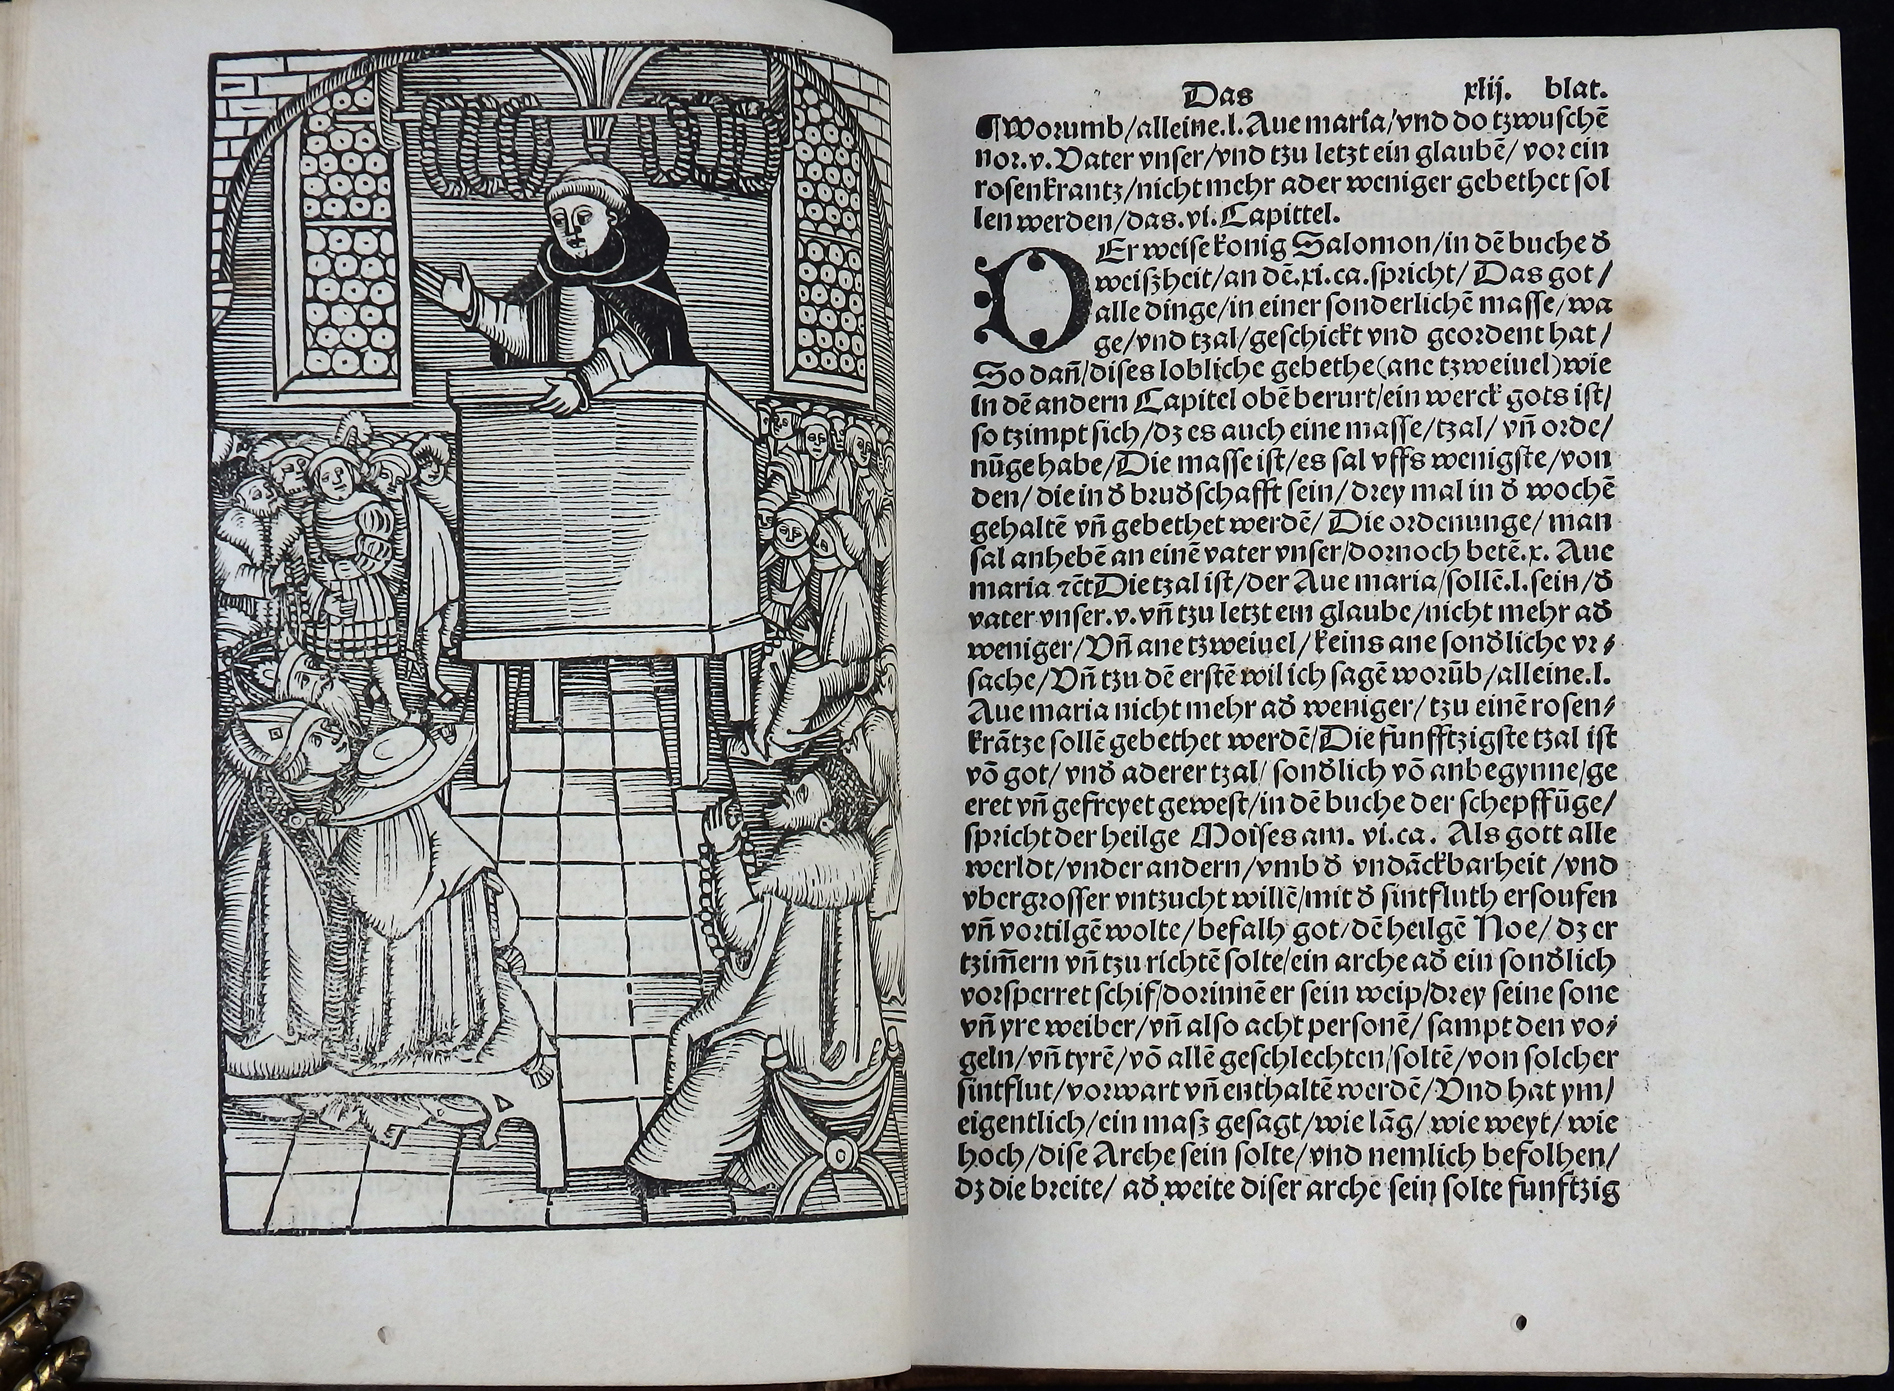 Das xlij. blat.
¶Worumb/alleine.l.Aue maria/vnd do tzwuschē
nor.v.Vater vnser/vnd tzu letzt ein glaubē/ vor ein
rosenkrantz/nicht mehr ader weniger gebethet sol
len werden/das.vi.Capittel.
DEr weise konig Salomon/in dē buche đ
weiszheit/an dē.xi.ca.spricht/ Das got/
alle dinge/in einer sonderlichē masse/wa
ge/vnd tzal/geschickt vnd geordent hat/
So dañ/dises lobliche gebethe(ane tzweiuel)wie
In dē andern Capitel obē berurt/ein werck gots ist/
so tzimpt sich/dz es auch eine masse/tzal/ vñ orde/
nūge habe/Die masse ist/es sal vffs wenigste/von
den/die in đ bruđschafft sein/drey mal in đ wochē
gehaltē vñ gebethet werdē/ Die ordenunge/man
sal anhebē an einē vater vnser/dornoch betē.x. Aue
maria ⁊c̄t Die tzal ist/der Aue maria/sollē.l.sein/đ
vater vnser.v.vñ tzu letzt ein glaube/nicht mehr ađ
weniger/Vñ ane tzweiuel/keins ane sonđliche vr⸗
sache/Vñ tzu dē erstē wil ich sagē worūb/alleine.l.
Aue maria nicht mehr ađ weniger/tzu einē rosen⸗
krātze sollē gebethet werdē/Die funfftzigste tzal ist
vō got/vnđ aderer tzal/sonđlich vō anbegynne/ge
eret vñ gefreyet gewest/in dē buche der schepffūge/
spricht der heilge Moises am. vi.ca. Als gott alle
werldt/vnder andern/vmb đ vndāckbarheit/vnd
vbergrosser vntzucht willē/mit đ sintfluth ersoufen
vñ vortilgē wolte/befalh got/dē heilgē Noe/dz er
tzim̄ern vñ tzu richtē solte/ein arche ađ ein sonđlich
vorsperret schif/dorinnē er sein weip/drey seine sone
vñ yre weiber/vñ also acht personē/ sampt den vo⸗
geln/vñ tyrē/vō allē geschlechten/soltē/von solcher
sintflut/vorwart vñ enthaltē werdē/Vnd hat ym/
eigentlich/ein masz gesagt/wie lāg/wie weyt/wie
hoch/dise Arche sein solte/vnd nemlich befolhen/
dz die breite/ ađ weite diser arche sein solte funftzig